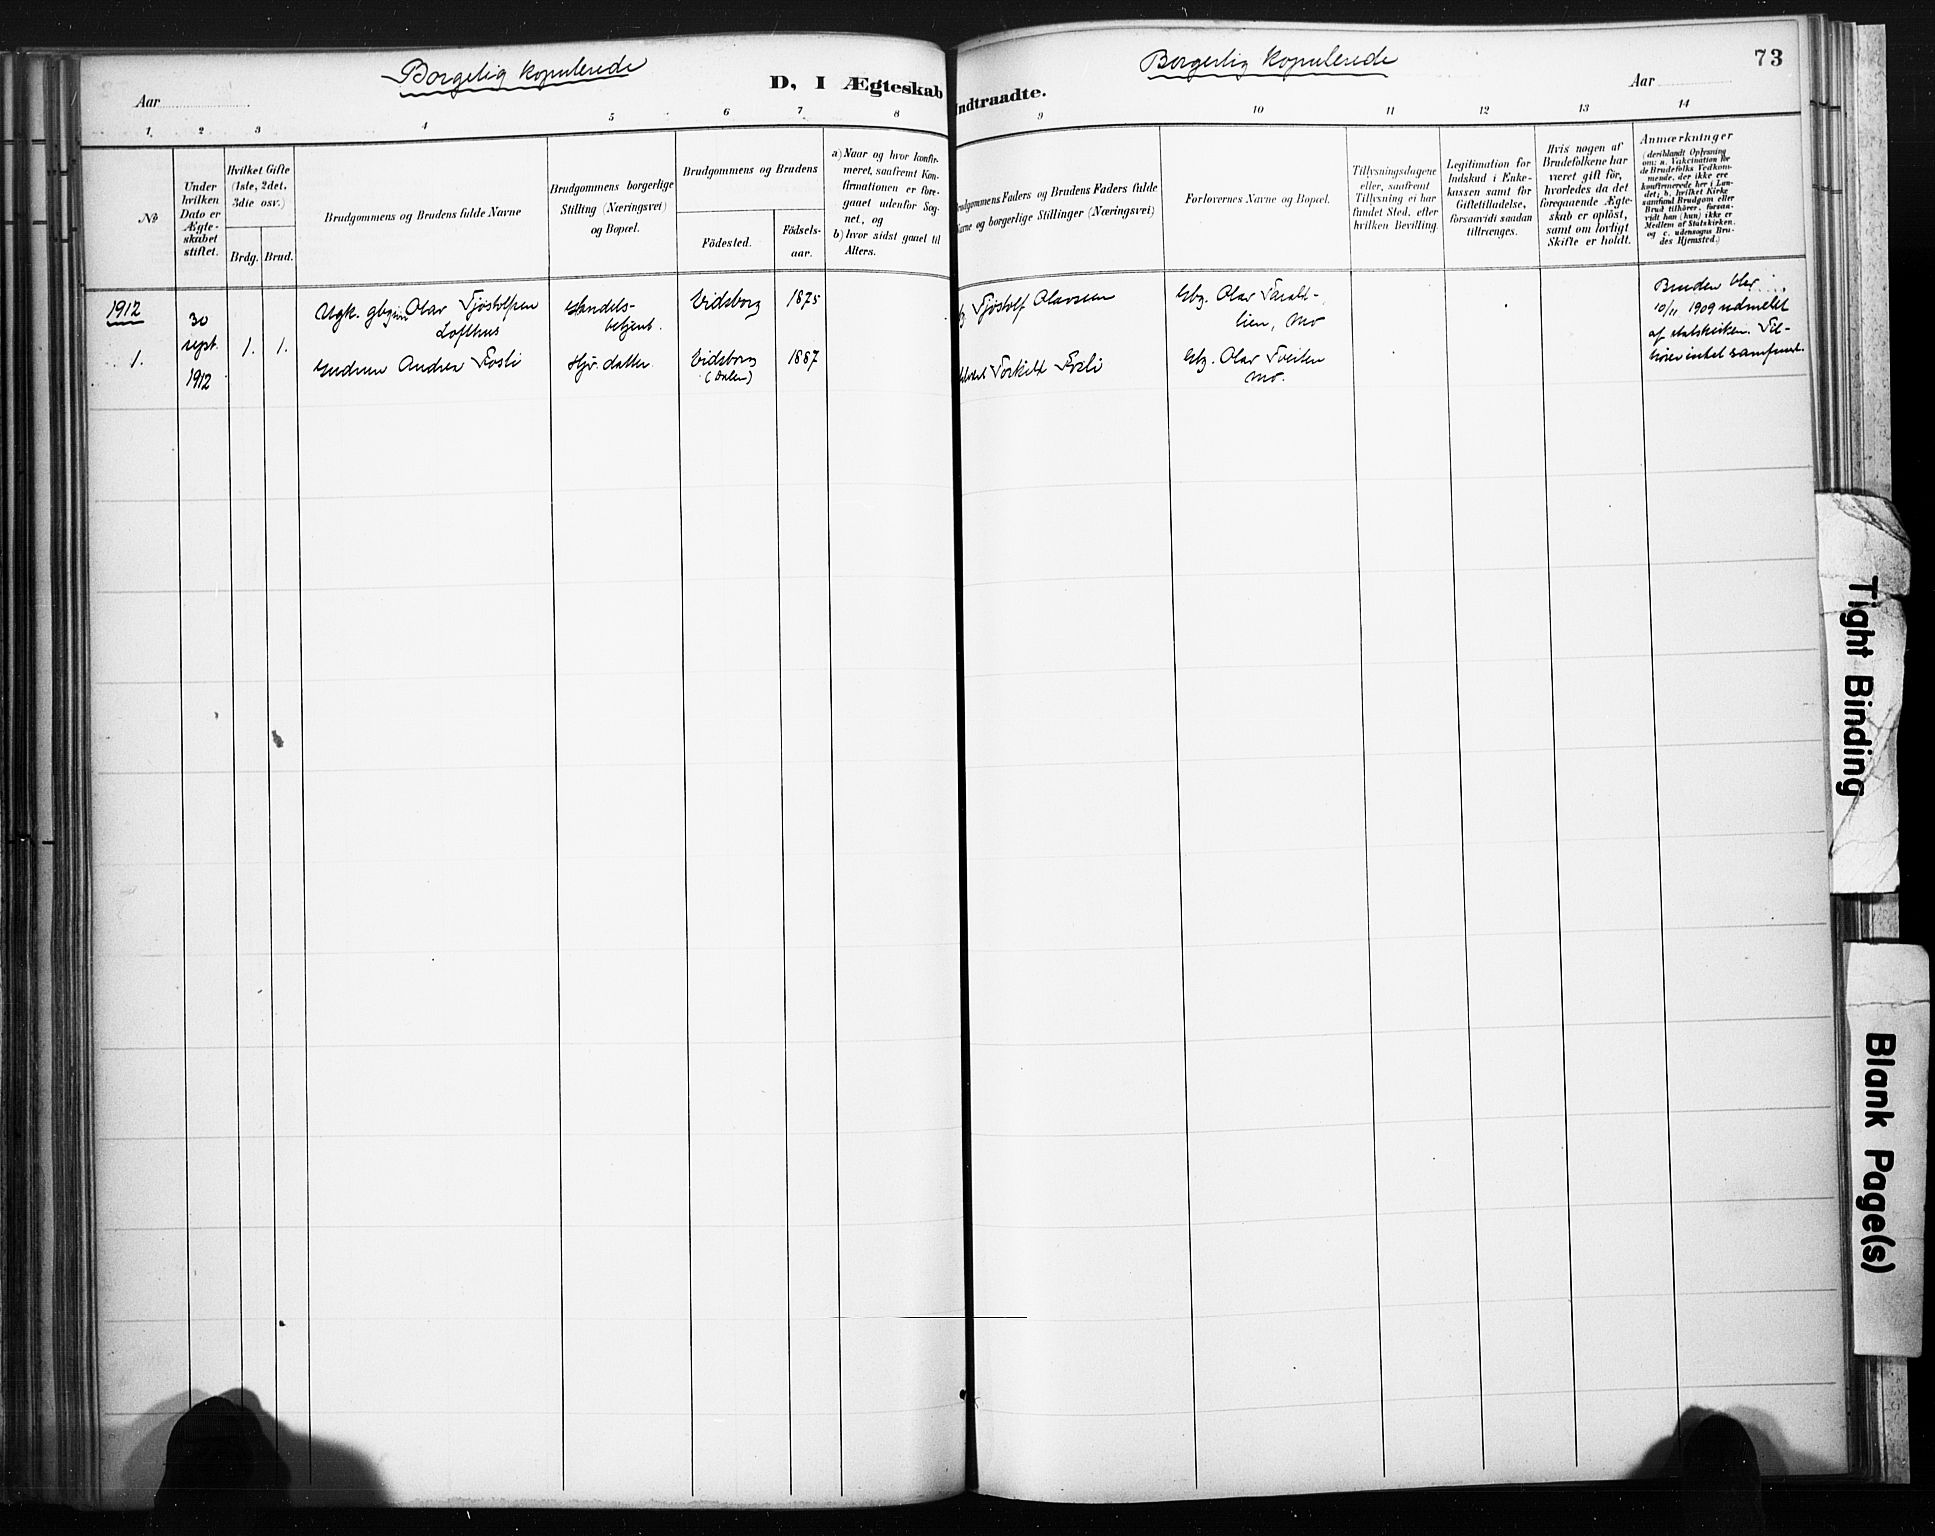 Borgerlig kopulerede
Borgerlig kopulerede
73
D, I Ægteskab Indtraadte.
Aar
Aar
1 2 3 4 5 6 7 8 9 10 11 12 13 14
№
Under
hvilken
Dato er
Ægte-
skabet
stiftet.
Hvilket Gifte
(1ste, 2det,
3die osv.)
Brdg. Brud.
Brudgommens og Brudens fulde Navne
Brudgommens borgerlige
Stilling (Næringsvei)
og Bopæl.
Brudgommens og Brudens
Födested.
Födsels-
aar.
a) Naar og hvor konfir-
meret, saafremt Kon-
firmationen er fore-
gaaet udenfor Sog-
net, og
b) hvor sidst gaaet til
Alters.
Brudgommens Faders og Brudens Faders fulde
Navne og borgerlige Stillinger (Næringsvei)
Forlovernes Navne og Bopæl.
Tillysningsdagene
eller, saafremt
Tillysning ei har
fundet Sted, efter
hvilken Bevilling.
Legitimation for
Indskud i Enke-
kassen samt for
Giftetilladelse,
forsaavidt saadan
tiltrænges.
Hvis nogen af
Brudefolkene har
været gift før,
hvorledes da det
foregaaende Ægte-
skab er opløst,
samt om lovligt
Skifte er holdt.
Anmærkninger
(deriblandt Oplysning
om: a. Vakcination for
de Brudefolks Vedkom-
mende, der ikke ere
konfirmerede her i Lan-
det; b. hvilket Kirke
samfund Brudgom eller
Brud tilhører, forsaa-
vidt han (hun) ikke er
Medlem af Statskirken,
og c. udensogns Bru-
des Hjemsted.)
1912
1.
30
sept.
1912
1. 1.
Ugk. Olav Tjöstolfsen
Lofthus
Handels-
betjent.
Vidsborg 1875
Tjöstolf Olavsen
Gbg. Olav Tarald-
lien, Mo
Bruden blev
10/11 1909 udmeldt
af statskirken. Til-
hörer intet samfund.
Gudrun Andrea Fosli
Hjv. datter
Vidsborg 1887
(Dalen)
Torkild Fosli
Gbg. Olav Tveiten
Mo.
Tight Binding
Blank Page(s)